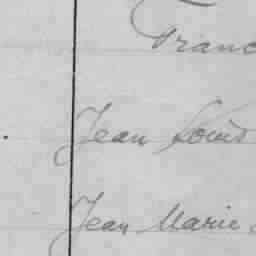 Franc
Jean Louis
Jean Marie